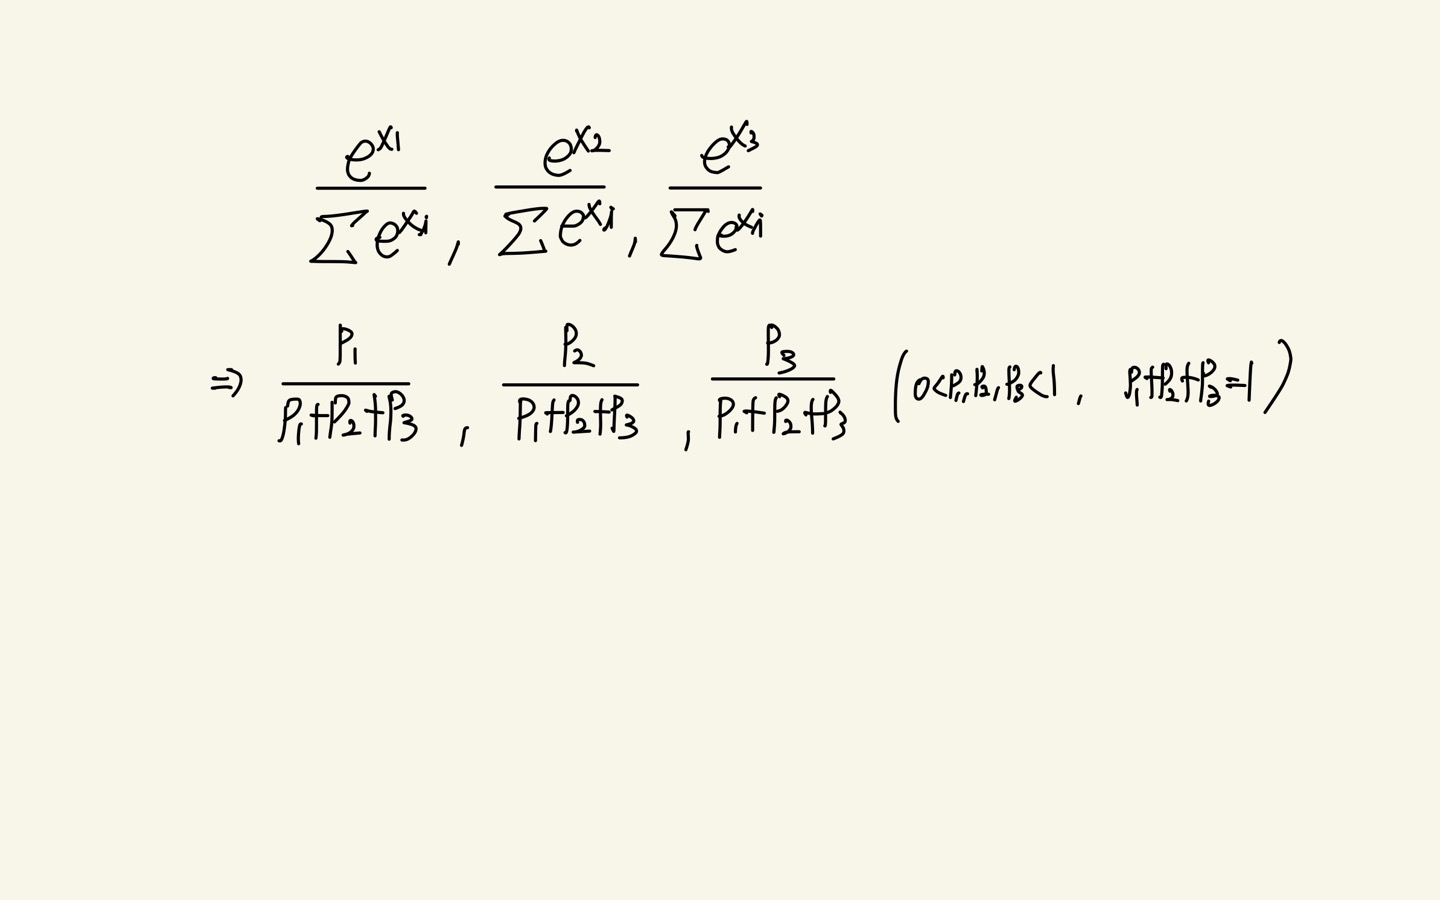 e^{x_1} / ∑ e^{x_i} , e^{x_2} / ∑ e^{x_i} , e^{x_3} / ∑ e^{x_i}
⇒ P_1 / P_1+P_2+P_3 , P_2 / P_1+P_2+P_3 , P_3 / P_1+P_2+P_3 ( 0<P_1,P_2,P_3<1 , P_1+P_2+P_3=1 )